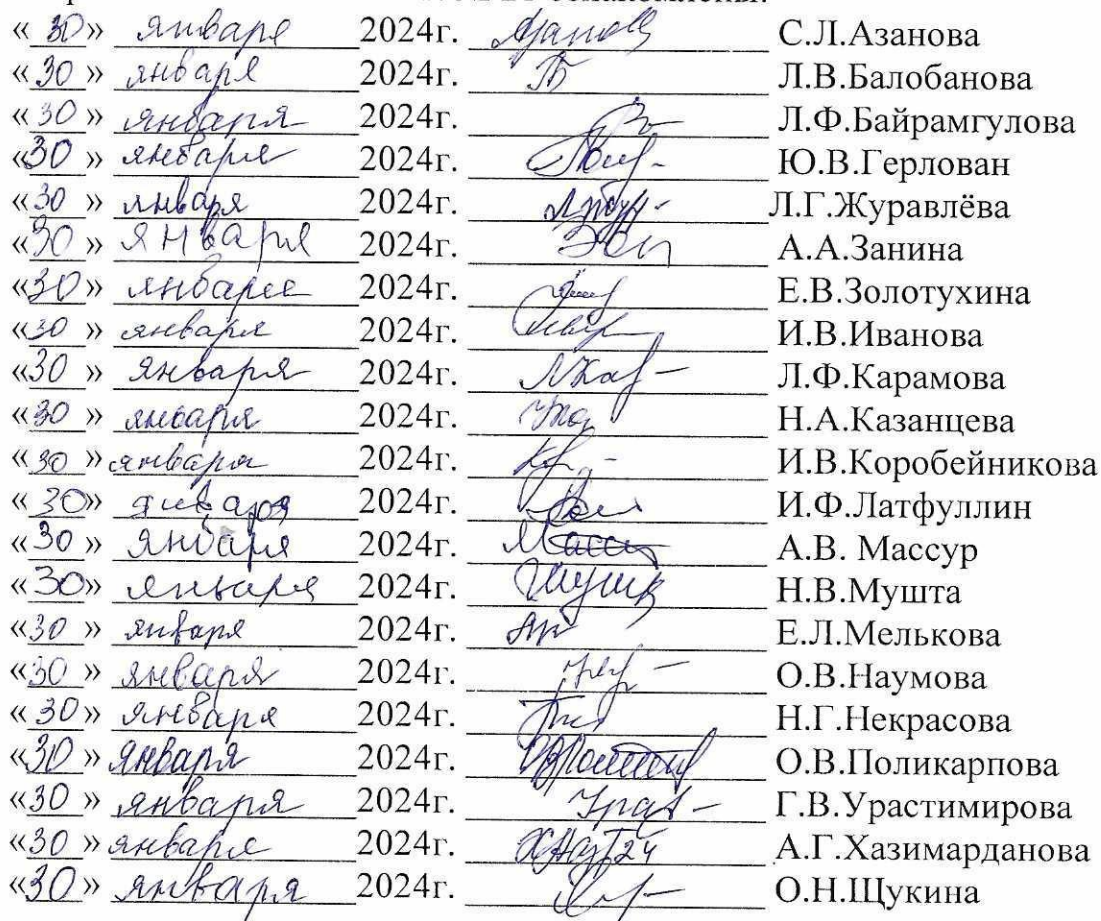 ознакомлены:
«30» января 2024г. С.Л.Азанова
«30» января 2024г. Л.В.Балобанова
«30» января 2024г. Л.Ф.Байрамгулова
«30» января 2024г. Ю.В.Герлован
«30» января 2024г. Л.Г.Журавлёва
«30» января 2024г. А.А.Занина
«30» января 2024г. Е.В.Золотухина
«30» января 2024г. И.В.Иванова
«30» января 2024г. Л.Ф.Карамова
«30» января 2024г. Н.А.Казанцева
«30» января 2024г. И.В.Коробейникова
«30» января 2024г. И.Ф.Латфуллин
«30» января 2024г. А.В. Массур
«30» января 2024г. Н.В.Мушта
«30» января 2024г. Е.Л.Мелькова
«30» января 2024г. О.В.Наумова
«30» января 2024г. Н.Г.Некрасова
«30» января 2024г. О.В.Поликарпова
«30» января 2024г. Г.В.Урастимирова
«30» января 2024г. А.Г.Хазимарданова
«30» января 2024г. О.Н.Щукина